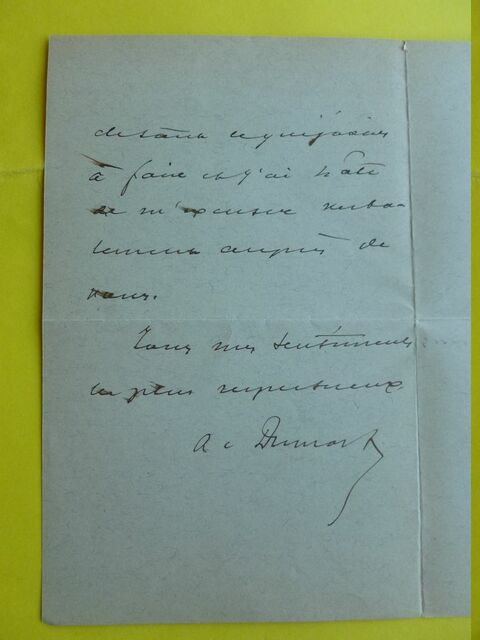 à faire et j'ai hâte
de m'excuser verba-
lement auprès de
vous.
Tous mes sentiments
les plus respectueux
A Dumont